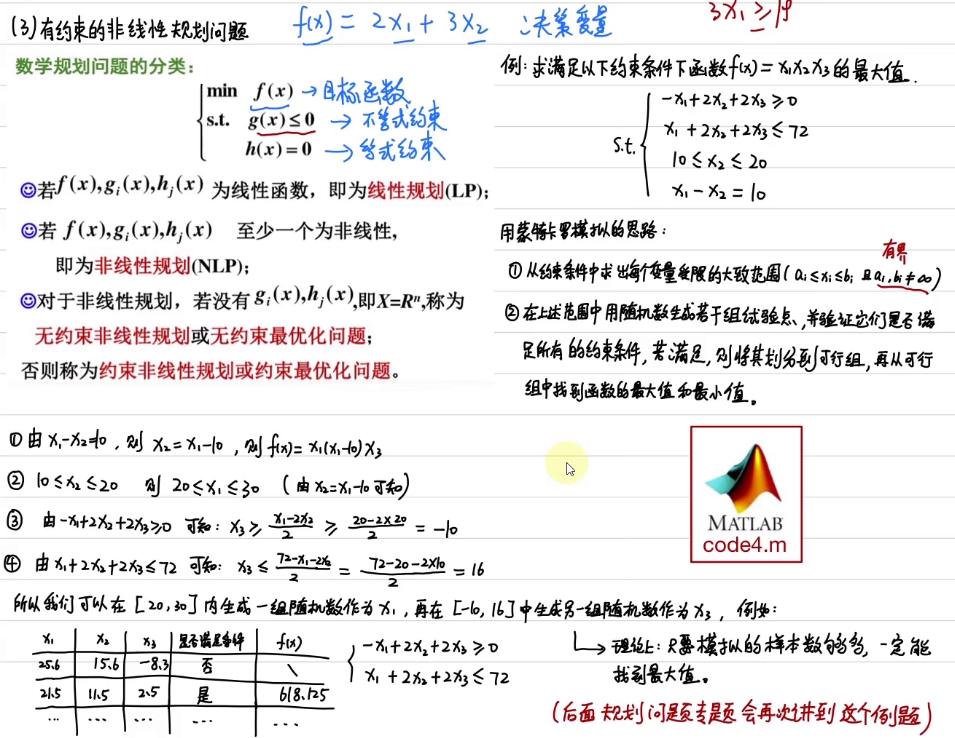 (3)有约束的非线性规划问题
f(x) = 2x₁ + 3x₂ :决策变量
3x₁ ≥ 19
数学规划问题的分类:
min f(x) → 目标函数
s.t. g(x) ≤ 0 → 不等式约束
h(x) = 0 → 等式约束
☺若f(x),gᵢ(x),hⱼ(x) 为线性函数，即为线性规划(LP);
☺若 f(x),gᵢ(x),hⱼ(x) 至少一个为非线性,
即为非线性规划(NLP);
☺对于非线性规划，若没有gᵢ(x),hⱼ(x),即X=Rⁿ,称为
无约束非线性规划或无约束最优化问题;
否则称为约束非线性规划或约束最优化问题。
例: 求满足以下约束条件下函数f(x) = x₁x₂x₃的最大值.
s.t.
-x₁+2x₂+2x₃ ≥ 0
x₁+2x₂+2x₃ ≤ 72
10 ≤ x₂ ≤ 20
x₁-x₂ = 10
用蒙特卡罗模拟的思路:
有界
①从约束条件中求出每个变量受限的大致范围(aᵢ≤xᵢ≤bᵢ 且aᵢ,bᵢ≠∞)
②在上述范围中用随机数生成若干组试验点,并验证它们是否满
足所有的约束条件,若满足,则将其划分到可行组,再从可行
组中找到函数的最大值和最小值。
①由x₁-x₂=10, 则 x₂=x₁-10, 则f(x)= x₁(x₁-10)x₃
② 10≤x₂≤20 则 20≤x₁≤30 (由x₂=x₁-10可知)
③ 由-x₁+2x₂+2x₃≥0 可知: x₃ ≥ (x₁-2x₂)/2 ≥ (20-2×20)/2 = -10
④ 由x₁+2x₂+2x₃≤72 可知: x₃ ≤ (72-x₁-2x₂)/2 = (72-20-2×10)/2 = 16
MATLAB
code4.m
所以我们可以在[20,30]内生成一组随机数作为x₁,再在[-10,16]中生成另一组随机数作为x₃, 例如:
x₁ x₂ x₃ 是否满足条件 f(x)
25.6 15.6 -8.3 否 \
21.5 11.5 2.5 是 618.125
... ... ... ... ...
-x₁+2x₂+2x₃≥0
x₁+2x₂+2x₃≤72
→ 理论上: 只要模拟的样本数够多,一定能
找到最大值。
(后面规划问题专题会再次讲到这个例题)